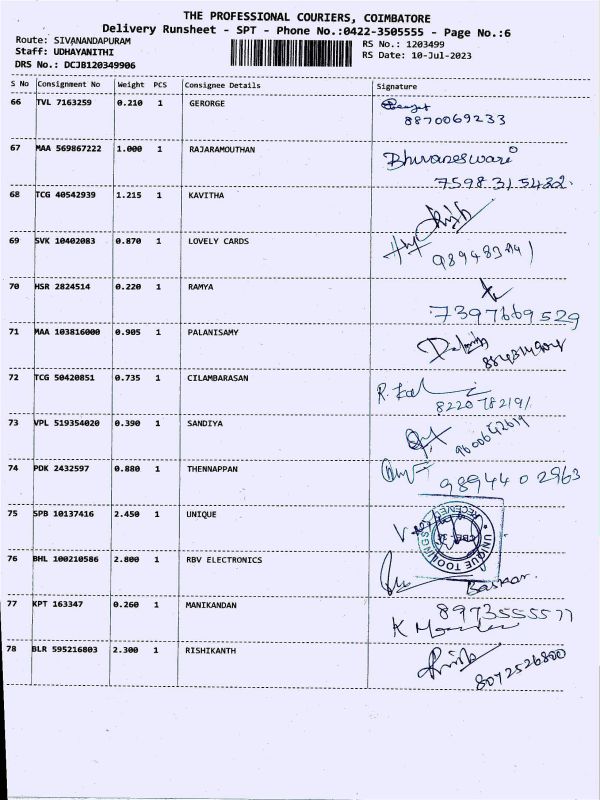 THE PROFESSIONAL COURIERS, COIMBATORE
Delivery Runsheet - SPT - Phone No.:0422-3505555 - Page No.:6
Route: SIVANANDAPURAM
RS No.: 1203499
Staff: UDHAYANITHI
RS Date: 10-Jul-2023
DRS No.: DCJB120349906
S No Consignment No Weight PCS Consignee Details Signature
66 TVL 7163259 0.210 1 GERORGE
8870069233
67 MAA 569867222 1.000 1 RAJARAMOUTHAN Bhuvaneswari
7598315432
68 TCG 40542939 1.215 1 KAVITHA
69 SVK 10402083 0.870 1 LOVELY CARDS
70 HSR 2824514 0.220 1 RAMYA
7397669529
71 MAA 103816000 0.905 1 PALANISAMY
72 TCG 50420851 0.735 1 CILAMBARASAN
8220782191
73 VPL 519354020 0.390 1 SANDIYA
9600642619
74 PDK 2432597 0.880 1 THENNAPPAN
9894402963
75 SPB 10137416 2.450 1 UNIQUE
UNIQUE TOOLINGS
RECEIVED
76 BHL 100210586 2.800 1 RBV ELECTRONICS
Baskar.
77 KPT 163347 0.260 1 MANIKANDAN
8973555577
78 BLR 595216803 2.300 1 RISHIKANTH
8072526800